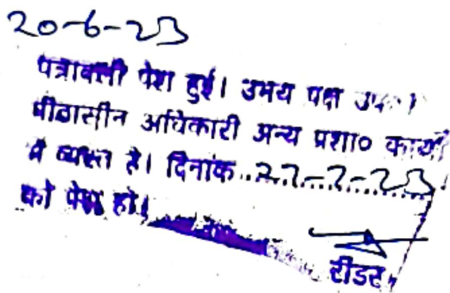 20-6-23
पत्रावली पेश हुई। उभय पक्ष उप०।
पीठासीन अधिकारी अन्य प्रशा० कार्यो
मे व्यस्त है। दिनांक..22-7-23
को पेश हो।
रीडर